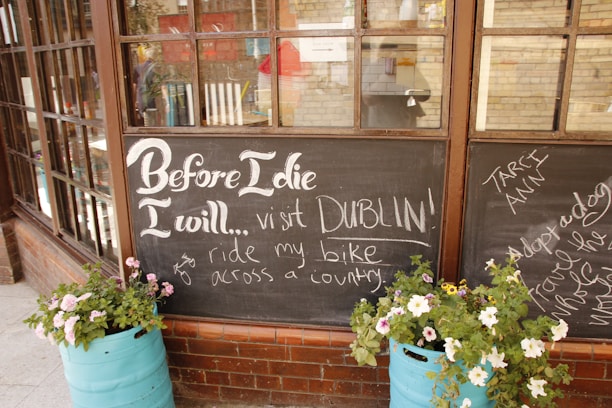 Before I die
I will... visit DUBLIN!
ride my bike
across a country
TARCI
ANN
Adopt a dog
Travel the
WHOLE
WORLD